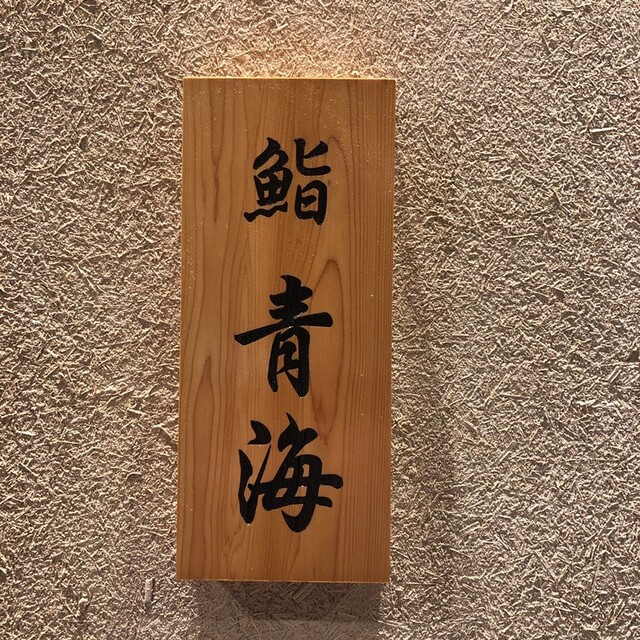 鮨 青海